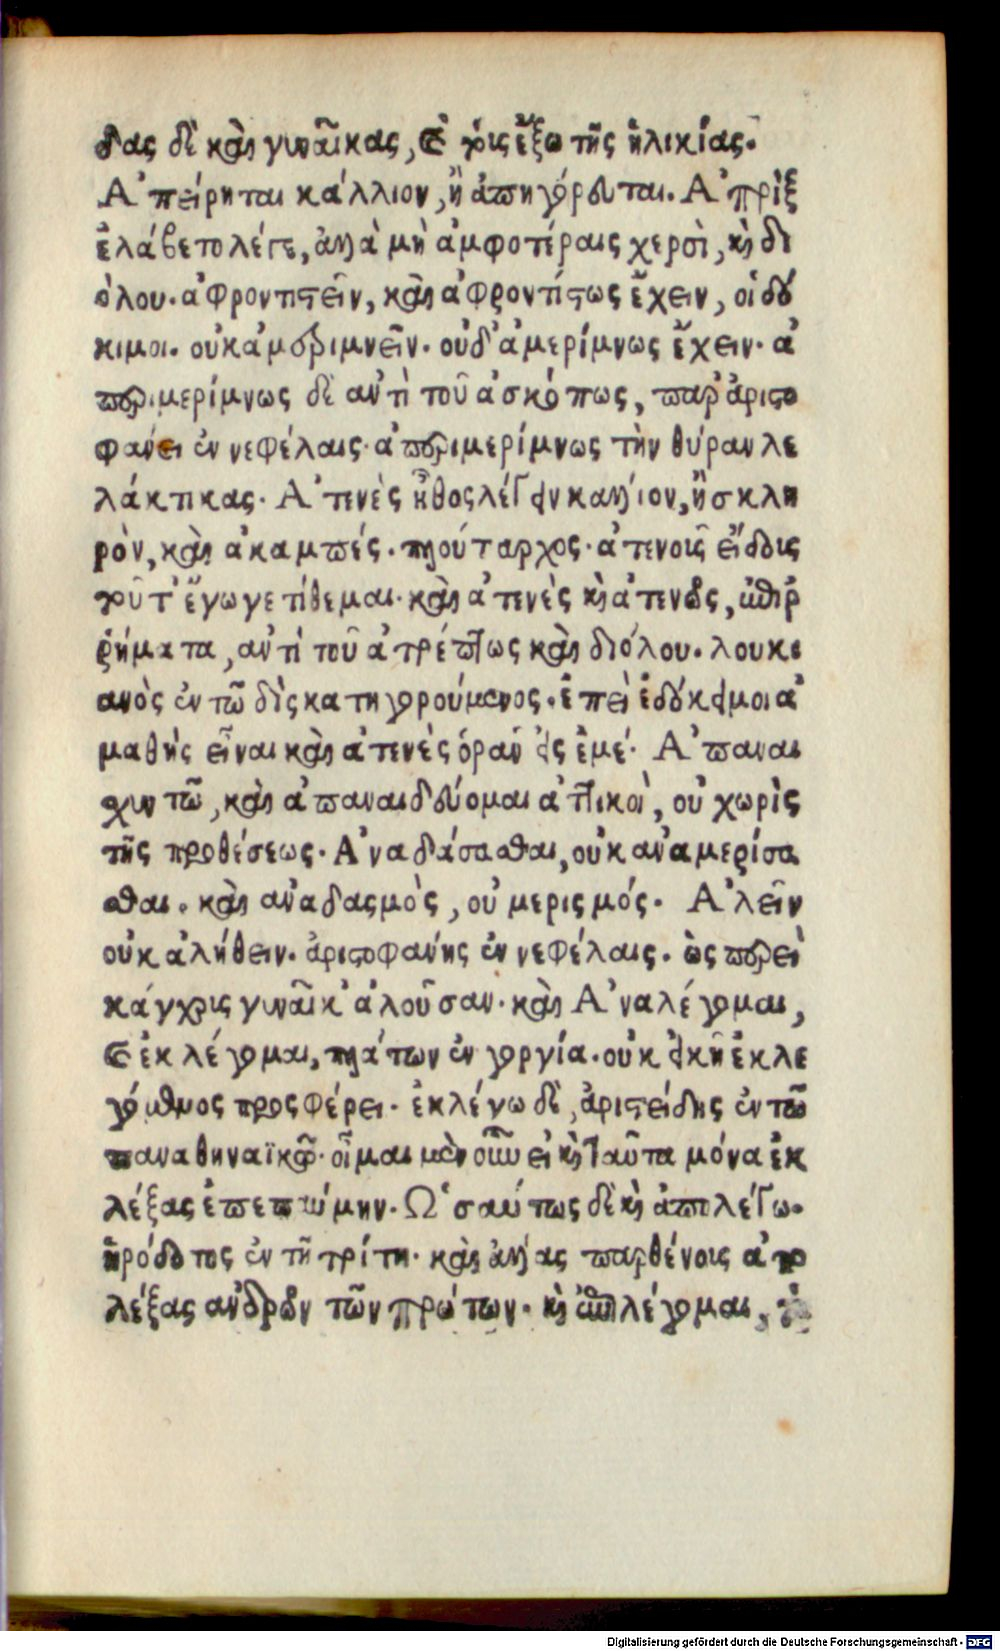 δας δὲ καὶ γυναῖκας, καὶ τοὺς ἔξω τῆς ἡλικίας.
Ἀπείρηται κάλλιον, ἢ ἀπηγόρευται. Ἀπρὶξ
ἐλάβετο λέγε, ἀλλὰ μὴ ἀμφοτέραις χερσὶ, καὶ δι
όλου. ἀφροντιστεῖν, καὶ ἀφροντίστως ἔχειν, οἱ δό
κιμοι. οὐκ ἀμεριμνεῖν. οὐδ' ἀμερίμνως ἔχειν. ἀ
περιμερίμνως δὲ ἀντὶ τοῦ ἀσκόπως, παρ' ἀριστο
φάνει ἐν νεφέλαις. ἀπεριμερίμνως τὴν θύραν λε
λάκτικας. Ἀτενὲς ἦθος λέγειν κάλλιον, ἢ σκλη
ρὸν, καὶ ἀκαμπές. πλούταρχος. ἀτενοῖς εἴδοις
τοῦτ' ἔγωγε τίθεμαι. καὶ ἀτενὲς καὶ ἀτενῶς, ἐπιρ
ῥήματα, ἀντὶ τοῦ ἀτρέπτως καὶ διόλου. λουκι
ανὸς ἐν τῷ δὶς κατηγορούμενος. ἐπεὶ ἐδόκει μοι ἀ
μαθὴς εἶναι καὶ ἀτενὲς ὁρᾶν εἰς ἐμέ. Ἀπαναι
χυντῶ, καὶ ἀπαναιδεύομαι ἀττικοὶ, οὐ χωρὶς
τῆς προθέσεως. Ἀναδάσασθαι, οὐκ ἀναμερίσα
σθαι. καὶ ἀναδασμὸς, οὐ μερισμός. Ἀλεῖν
οὐκ ἀλήθειν. ἀριστοφάνης ἐν νεφέλαις. ὡς περεὶ
κάγχρυς γυναῖκ' ἀλοῦσαν. καὶ Ἀναλέγομαι,
καὶ ἐκλέγομαι, πλάτων ἐν γοργία. οὐκ εἰκῆ ἐκλε
γόμενος προσφέρει. ἐκλέγω δὲ, ἀριστείδης ἐν τῷ
παναθηναϊκῷ. οἶμαι μὲν οὖν εἰ καὶ ταῦτα μόνα ἐκ
λέξας ἐπεπαύμην. Ὡσαύτως δὲ καὶ ἀπολέγω.
ἡρόδοτος ἐν τῇ τρίτῃ. καὶ ἄλλας παρθένοις ἀπο
λέξας ἀνδρῶν τῶν πρώτων. καὶ ἐπιλέγομαι,
Digitalisierung gefördert durch die Deutsche Forschungsgemeinschaft - DFG